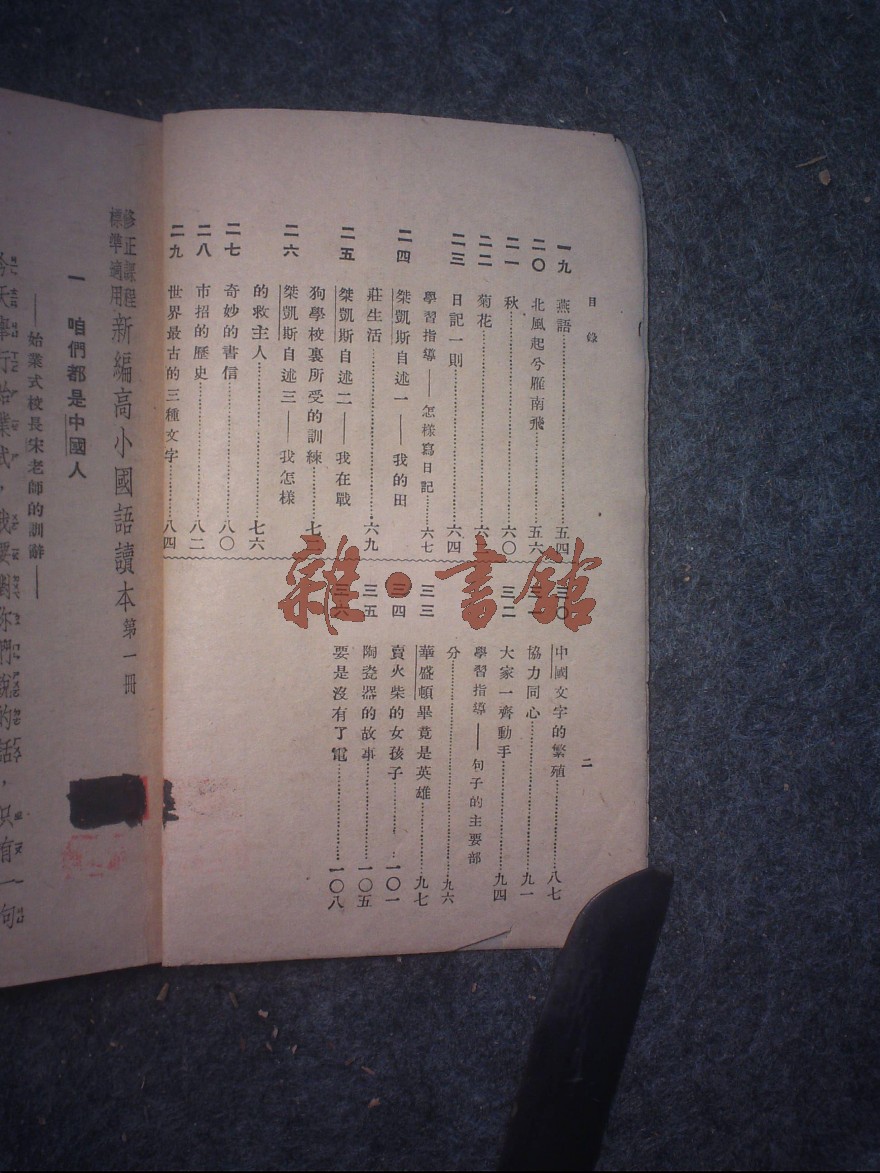 目錄
二
一九 燕語……五四
二〇 北風起兮雁南飛……五六
二一 秋……六〇
二二 菊花……六
二三 日記一則……六四
學習指導——怎樣寫日記……六七
二四 桀凱斯自述一——我的田
莊生活……六九
二五 桀凱斯自述二——我在戰
狗學校裏所受的訓練……七
二六 桀凱斯自述三——我怎樣
的救主人……七六
二七 奇妙的書信……八〇
二八 市招的歷史……八二
二九 世界最古的三種文字……八四
三〇 中國文字的繁殖……八七
三一 協力同心……九一
三二 大家一齊動手……九四
學習指導——句子的主要部
分……九六
三三 華盛頓畢竟是英雄……九七
三四 賣火柴的女孩子……一〇一
三五 陶瓷器的故事……一〇五
三六 要是沒有了電……一〇八
雜·書館
修正課程
標準適用
新編高小國語讀本第一冊
一 咱們都是中國人
——始業式校長宋老師的訓辭——
今天舉行始業式，我要問你們說的話，只有一句